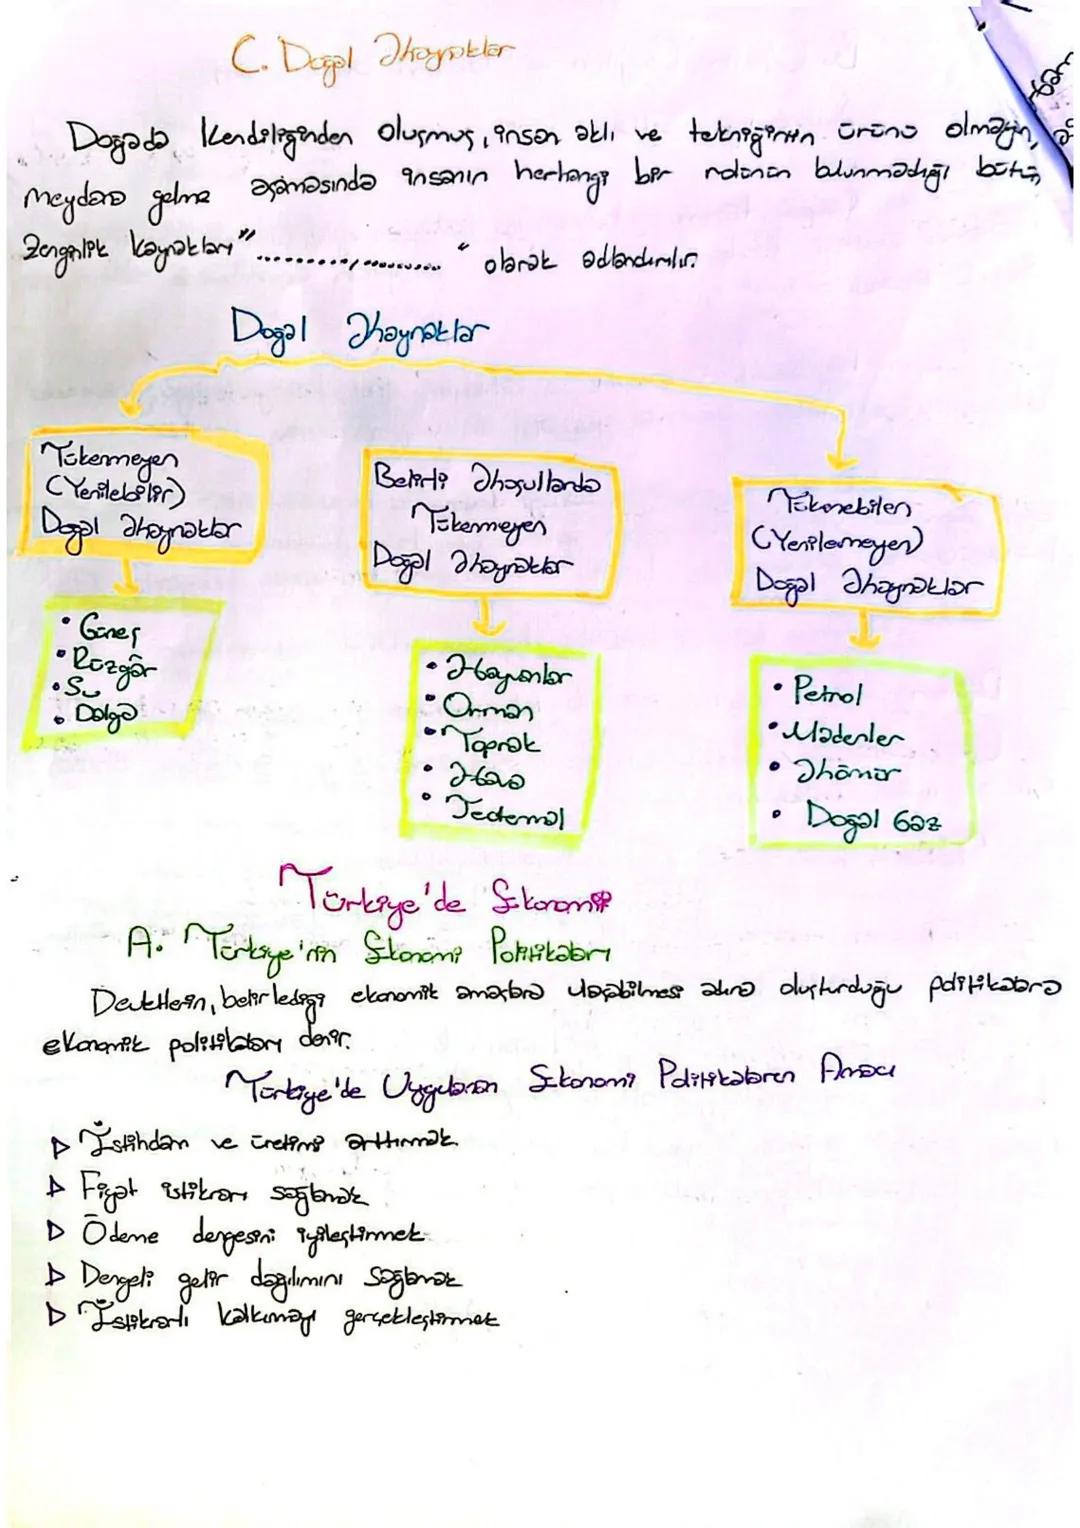 C. Doğal Kaynaklar
Doğada kendiliğinden oluşmuş, insan aklı ve tekniğinin ürünü olmayan,
meydana gelme aşamasında insanın herhangi bir rolünün bulunmadığı bütün
zenginlik kaynakları "..................." olarak adlandırılır.
Doğal Kaynaklar
Tükenmeyen
(Yenilebilir)
Doğal Kaynaklar
• Güneş
• Rüzgâr
• Su
• Dalga
Belirli Koşullarda
Tükenmeyen
Doğal Kaynaklar
• Hayvanlar
• Orman
• Toprak
• Hava
• Jeotermal
Tükenebilen
(Yenilemeyen)
Doğal Kaynaklar
• Petrol
• Madenler
• Kömür
• Doğal Gaz
Türkiye'de Ekonomi
A. Türkiye'nin Ekonomi Politikaları
Devletlerin, belirlediği ekonomik amaçlara ulaşabilmesi adına oluşturduğu politikalara
ekonomik politikaları denir.
Türkiye'de Uygulanan Ekonomi Politikaların Amacı
▷ İstihdam ve üretimi arttırmak.
▷ Fiyat istikrarı sağlamak
▷ Ödeme dengesini iyileştirmek
▷ Dengeli gelir dağılımını sağlamak
▷ İstikrarlı kalkınmayı gerçekleştirmek